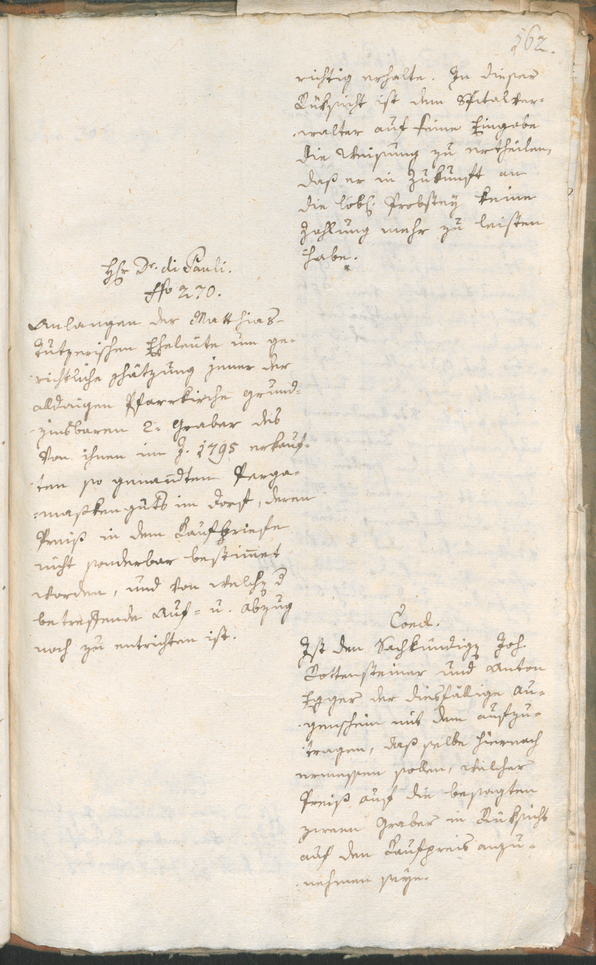 162.
richtig erhalte. In dieser
Rüksicht ist dem Spitalver-
walter auf seine Eingabe
die Weisung zu ertheilen,
daß er in Zukunft an
die löbl. Probstey keine
Zahlung mehr zu leisten
habe.
Hr Dr. di Pauli.
Ffo 270.
Anlangen der Matthias
Eheleute um ge-
richtliche Shätzung jener der
alldaigen Pfarrkirche grund-
zinsbaren 2. Graber des
von ihnen im J. 1795 erkauf-
ten so genandten Perga-
guts im Dorf, deren
Preiß in dem Kaufbriefe
nicht sonderbar bestimmet
worden, und von welchen d
betreffende Auf- u. Abzug
noch zu entrichten ist.
Cond.
Ist den Sachkündigen Joh.
Rottensteiner und Anton
Egger der diesfällige Au-
genschein mit dem aufzu-
tragen, daß selbe hiernach
ermessen sollen, welcher
Preiß auf die besagten
zween Graber in Rüksicht
auf den Kaufpreis anzu-
nehmen seye.